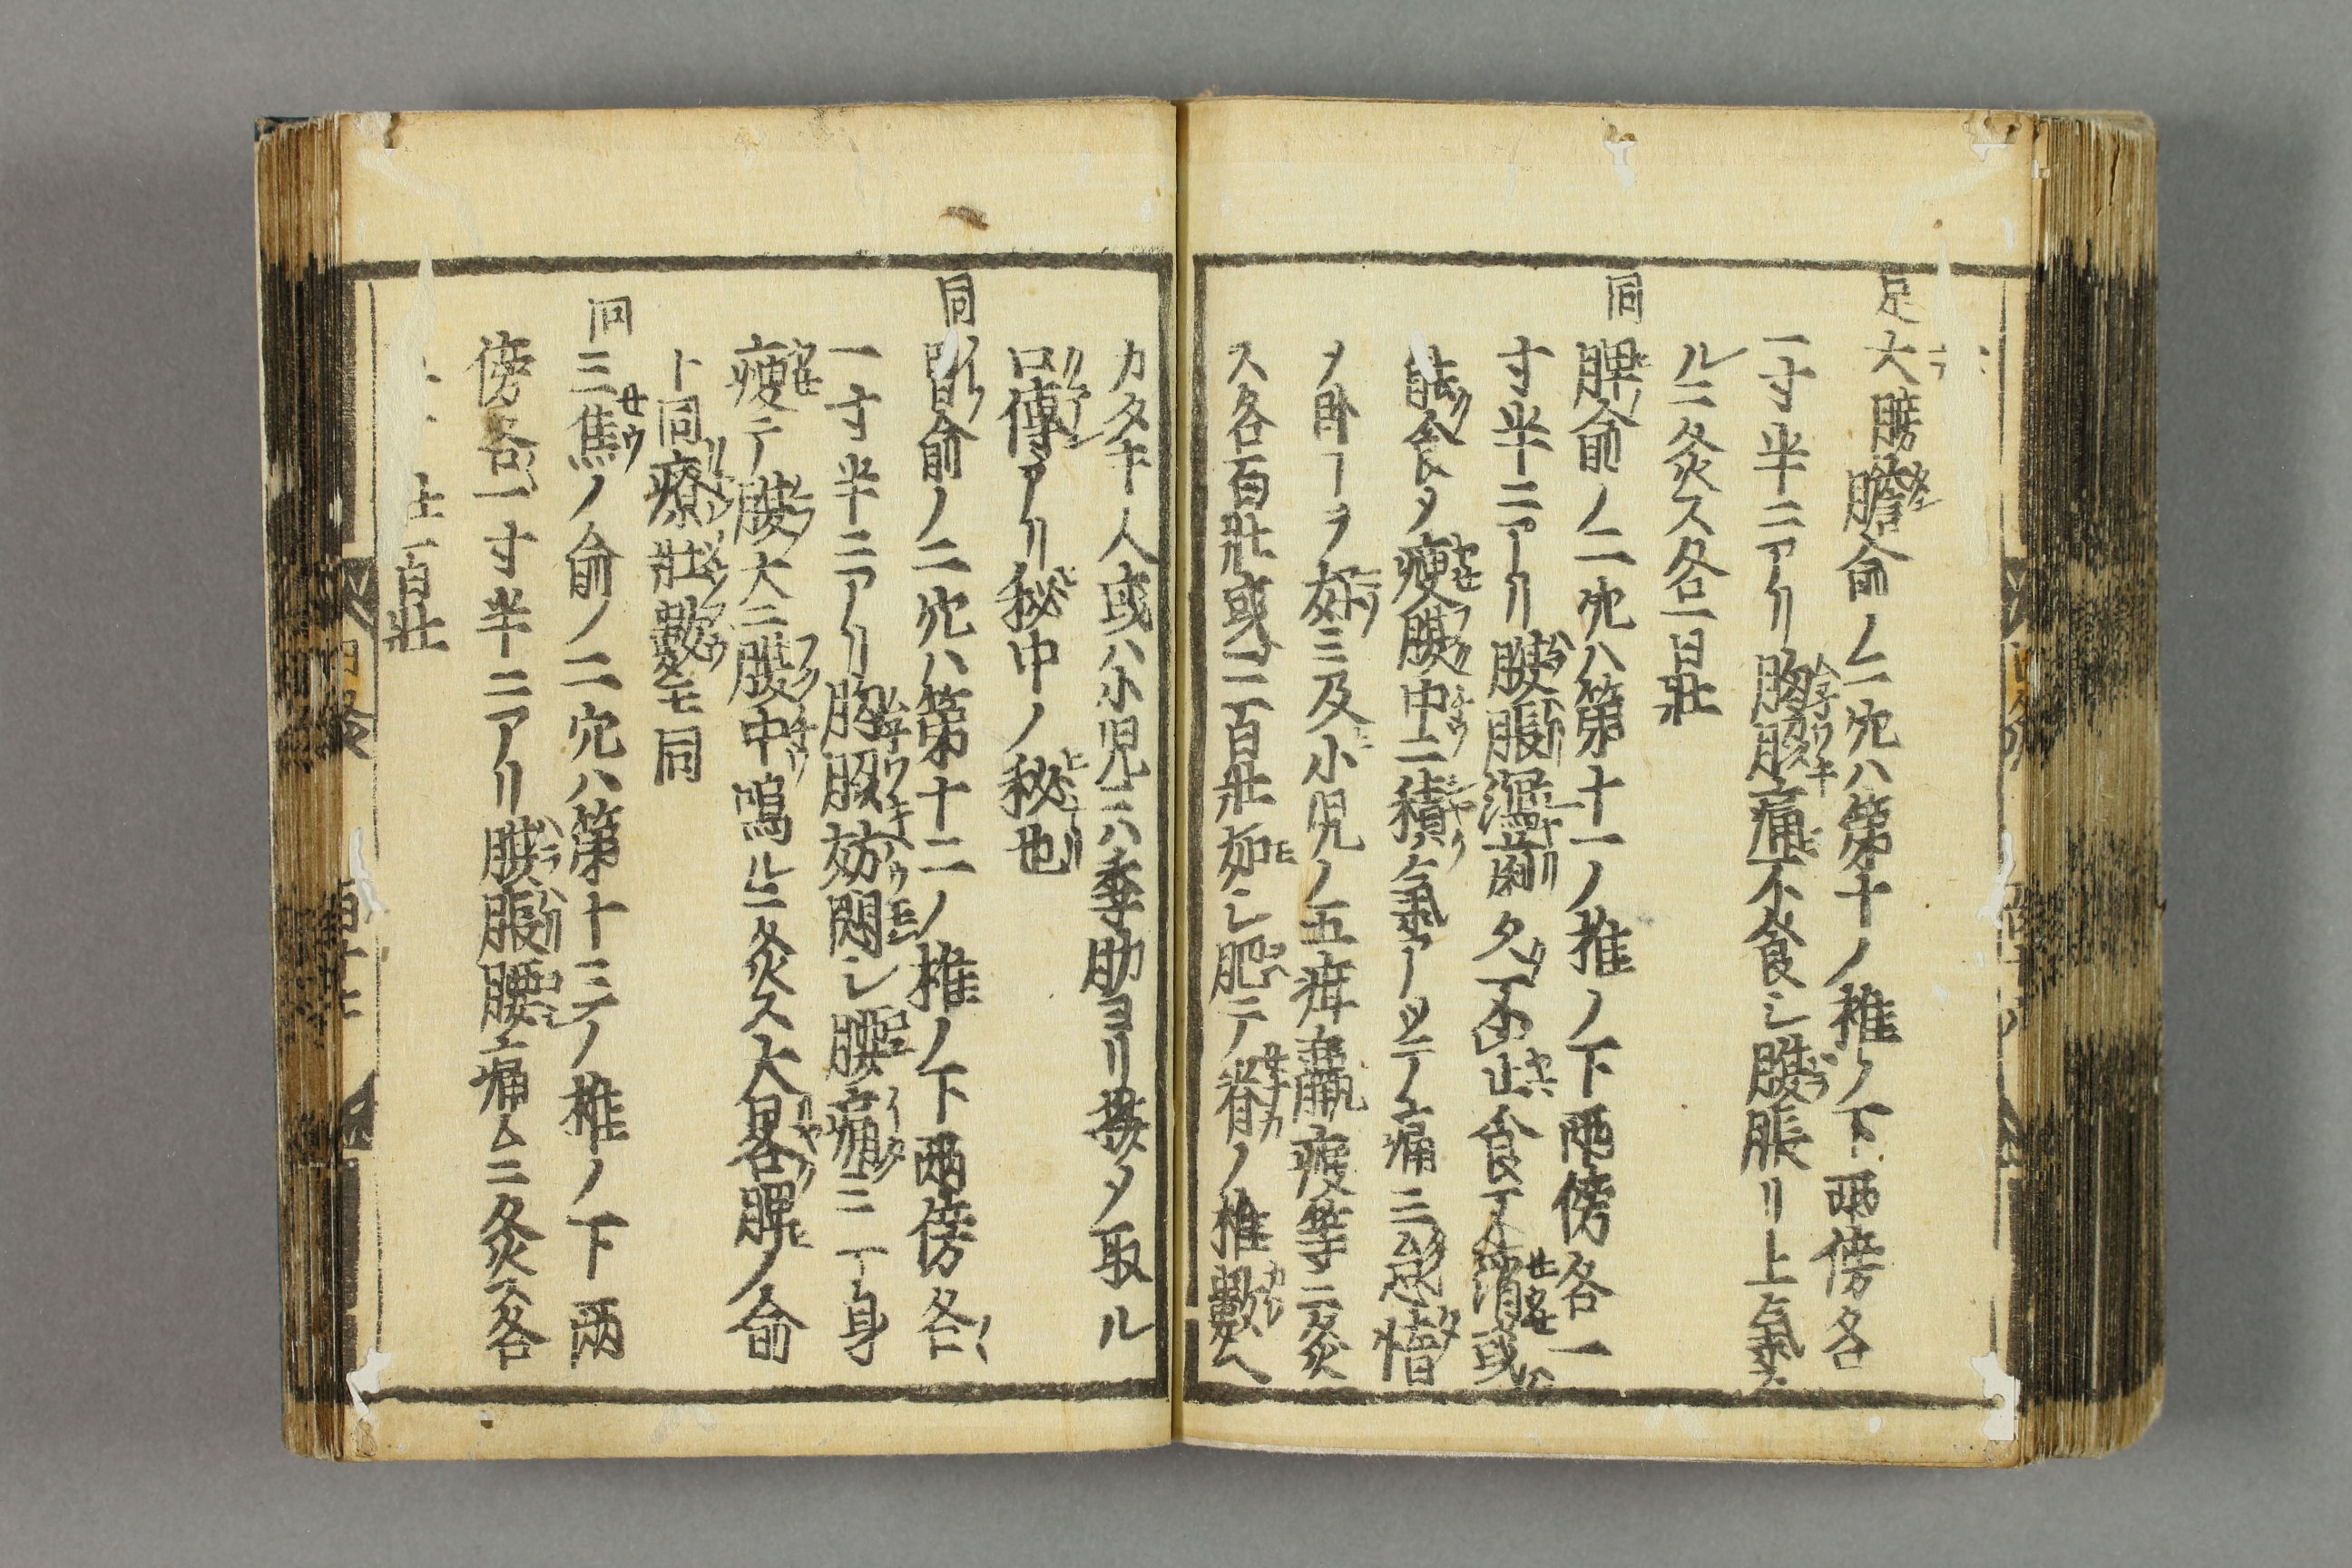 足大膀膽俞ノ二穴ハ第十ノ椎ノ下両傍各
一寸半ニアリ胸脇痛不食シ腹脹リ上氣ス
ルニ灸ス各一百壯
同脾俞ノ二穴ハ第十一ノ椎ノ下両傍各一
寸半ニアリ腹脹瀉タ不止食不消或
能食メ瘦腹中ニ積氣アツテ痛ミ忌憎
メ卧ヿヲ好ミ及小児ノ五疳羸瘦等ニ灸
ス各百壯或ハ二百壯如シ肥テ脊ノ椎數ヘ
カタキ人或ハ小児ニハ季肋ヨリ撥メ取ル
口傳アリ秘中ノ秘也
同胃俞ノ二穴ハ第十二ノ椎ノ下両傍各
一寸半ニアリ胸脇妨悶シ腰痛ミ一身
瘦テ腹大ニ腹中鳴ルニ灸ス大畧脾ノ俞
ト同療壯數モ同
同三焦ノ俞ノ二穴ハ第十三ノ椎ノ下両
傍各一寸半ニアリ腹脹腰痛ムニ灸ス各
一百壯